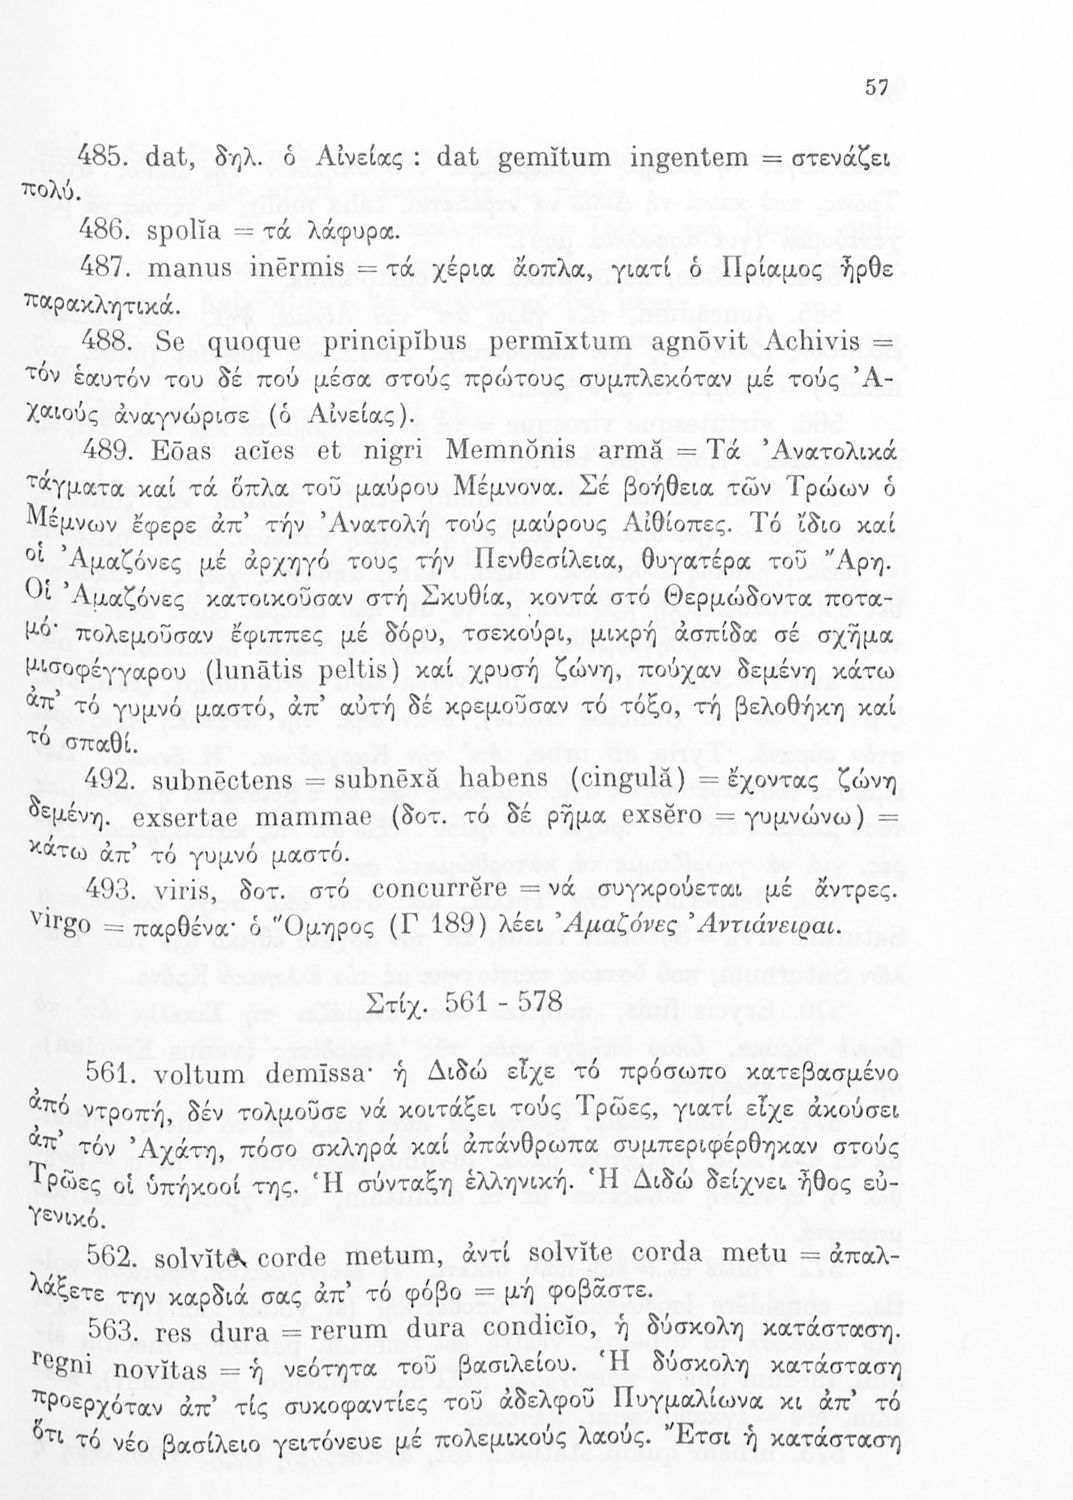 57
485. dat, δηλ. ὁ Αἰνείας : dat gemĭtum ingentem = στενάζει
πολύ.
486. spolĭa = τά λάφυρα.
487. manus inērmis = τά χέρια ἄοπλα, γιατί ὁ Πρίαμος ἦρθε
παρακλητικά.
488. Se quoque principĭbus permīxtum agnōvit Achivis =
τόν ἑαυτόν του δέ πού μέσα στούς πρώτους συμπλεκόταν μέ τούς Ἀ-
χαιούς ἀναγνώρισε (ὁ Αἰνείας).
489. Eōas acĭes et nigri Memnŏnis armă = Τά Ἀνατολικά
τάγματα καί τά ὅπλα τοῦ μαύρου Μέμνονα. Σέ βοήθεια τῶν Τρώων ὁ
Μέμνων ἔφερε ἀπ’ τήν Ἀνατολή τούς μαύρους Αἰθίοπες. Τό ἴδιο καί
οἱ Ἀμαζόνες μέ ἀρχηγό τους τήν Πενθεσίλεια, θυγατέρα τοῦ Ἄρη.
Οἱ Ἀμαζόνες κατοικοῦσαν στή Σκυθία, κοντά στό Θερμώδοντα ποτα-
μό· πολεμοῦσαν ἔφιππες μέ δόρυ, τσεκούρι, μικρή ἀσπίδα σέ σχῆμα
μισοφέγγαρου (lunātis peltis) καί χρυσή ζώνη, πούχαν δεμένη κάτω
ἀπ’ τό γυμνό μαστό, ἀπ’ αὐτή δέ κρεμοῦσαν τό τόξο, τή βελοθήκη καί
τό σπαθί.
492. subnēctens = subnēxă habens (cingulă) = ἔχοντας ζώνη
δεμένη. exsertae mammae (δοτ. τό δέ ρῆμα exsĕro = γυμνώνω) =
κάτω ἀπ’ τό γυμνό μαστό.
493. viris, δοτ. στό concurrĕre = νά συγκρούεται μέ ἄντρες.
virgo = παρθένα· ὁ Ὅμηρος (Γ 189) λέει Ἀμαζόνες Ἀντιάνειραι.
Στίχ. 561 - 578
561. voltum demīssa· ἡ Διδώ εἶχε τό πρόσωπο κατεβασμένο
ἀπό ντροπή, δέν τολμοῦσε νά κοιτάξει τούς Τρῶες, γιατί εἶχε ἀκούσει
ἀπ’ τόν Ἀχάτη, πόσο σκληρά καί ἀπάνθρωπα συμπεριφέρθηκαν στούς
Τρῶες οἱ ὑπήκοοί της. Ἡ σύνταξη ἑλληνική. Ἡ Διδώ δείχνει ἦθος εὐ-
γενικό.
562. solvĭte corde metum, ἀντί solvĭte corda metu = ἀπαλ-
λάξετε την καρδιά σας ἀπ’ τό φόβο = μή φοβᾶστε.
563. res dura = rerum dura condicĭo, ἡ δύσκολη κατάσταση.
regni novĭtas = ἡ νεότητα τοῦ βασιλείου. Ἡ δύσκολη κατάσταση
προερχόταν ἀπ’ τίς συκοφαντίες τοῦ ἀδελφοῦ Πυγμαλίωνα κι ἀπ’ τό
ὅτι τό νέο βασίλειο γειτόνευε μέ πολεμικούς λαούς. Ἔτσι ἡ κατάσταση